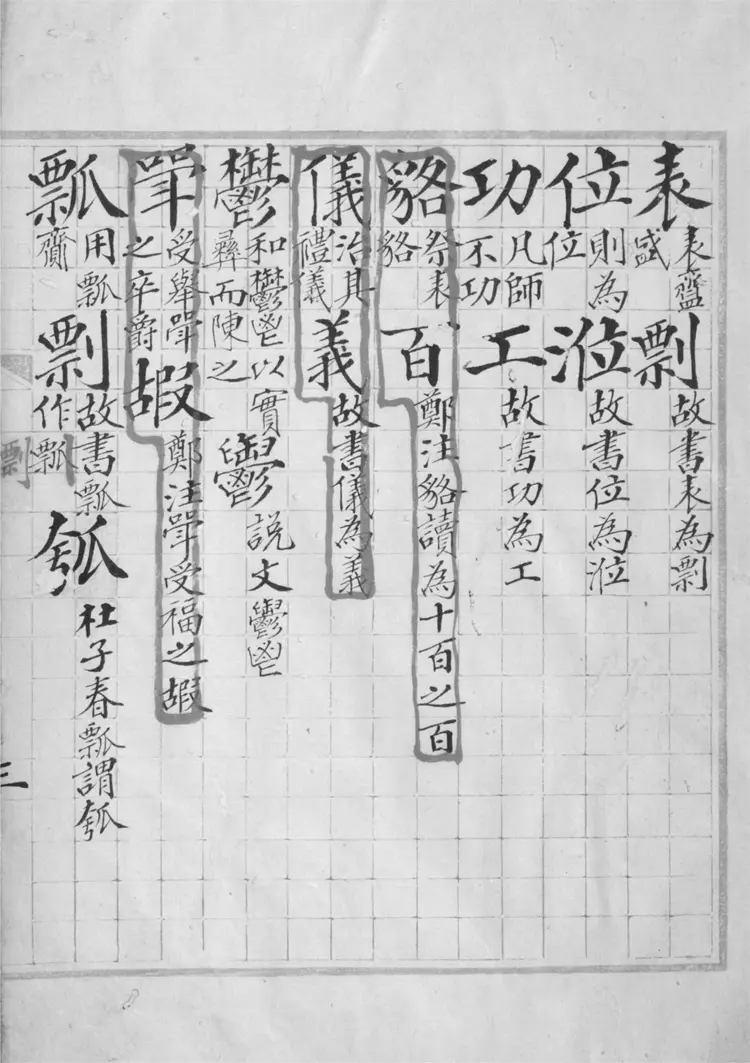 表
表齍
盛
剽
故書表為剽
位
則為
位
涖
故書位為涖
功
凡師
不功
工
故書功為工
貉
祭表
貉
百
鄭注貉讀為十百之百
儀
治其
禮儀
義
故書儀為義
鬱
和鬱鬯以實
彝而陳之
鬱
說文鬱鬯
斝
受舉斝
之卒爵
嘏
鄭注斝受福之嘏
瓢
用瓢
齎
剽
故書瓢
作瓢
瓠
杜子春瓢謂瓠
剽
三